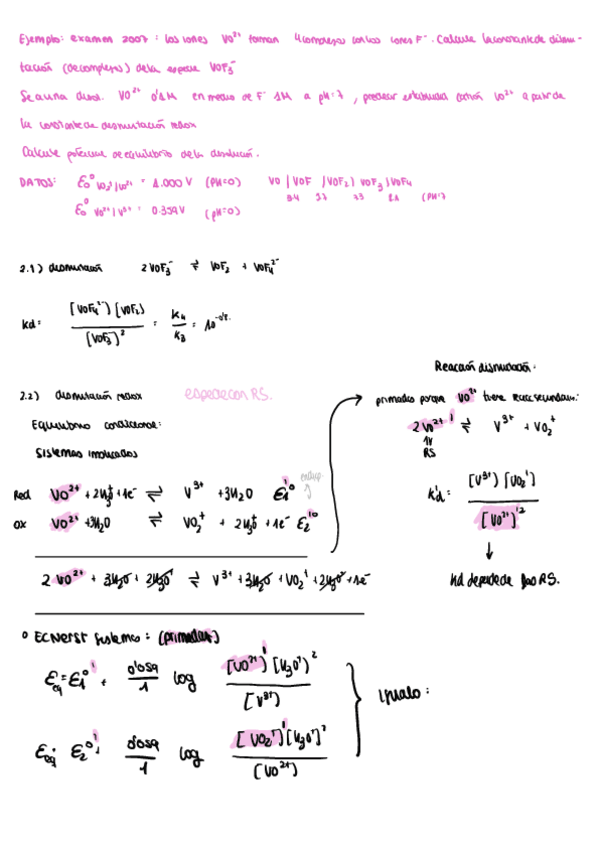 Ejemplo: examen 2007: los iones VO²⁺ forman 4 complejos con los iones F⁻. Calcule la constante de dismu-
tación (de complejos) de la especie VOF₃⁻
Sea una disol. VO²⁺ 0'1M en medio de F⁻ 1M a pH=7, predecir estabilidad catión VO²⁺ a partir de
la constante de dismutación redox
Calcule potencial de equilibrio de la disolución.
DATOS: ε₀⁰ VO₂⁺/VO²⁺ = 1.000 V (pH=0) VO | VOF | VOF₂ | VOF₃ | VOF₄
ε₀⁰ VO²⁺/V³⁺ = 0.359 V (pH=0) (pH=7
2.1) dismutación 2VOF₃⁻ ⇌ VOF₂ + VOF₄²⁻
Kd: [VOF₄²⁻][VOF₂] / [VOF₃⁻]² = K₄ / K₃ =
Reacción dismutación:
2.2) dismutación redox especie con RS.
primados porque VO²⁺ tiene reacc secundaria:
Equilibrio condicional:
2VO²⁺ ' ⇌ V³⁺ + VO₂⁺
RS
Sistemas implicados
Red VO²⁺ + 2H₃O⁺ + 1e⁻ ⇌ V³⁺ + 3H₂O E₁'⁰
K'd = [V³⁺][VO₂⁺] / [VO²⁺]'²
Ox VO²⁺ + 3H₂O ⇌ VO₂⁺ + 2H₃O⁺ + 1e⁻ E₂'⁰
2 VO²⁺ + 3H₂O + 2H₃O⁺ ⇌ V³⁺ + 3H₂O + VO₂⁺ + 2H₃O⁺ + 1e⁻
Kd depende de las RS.
º EC Nerst sistemas: (primadas)
Eeq = E₁⁰' + 0'059/1 log [VO²⁺]'[H₃O⁺]² / [V³⁺]
igualo:
Eeq = E₂⁰' 0'059/1 log [VO₂⁺]'[H₃O⁺]² / [VO²⁺]